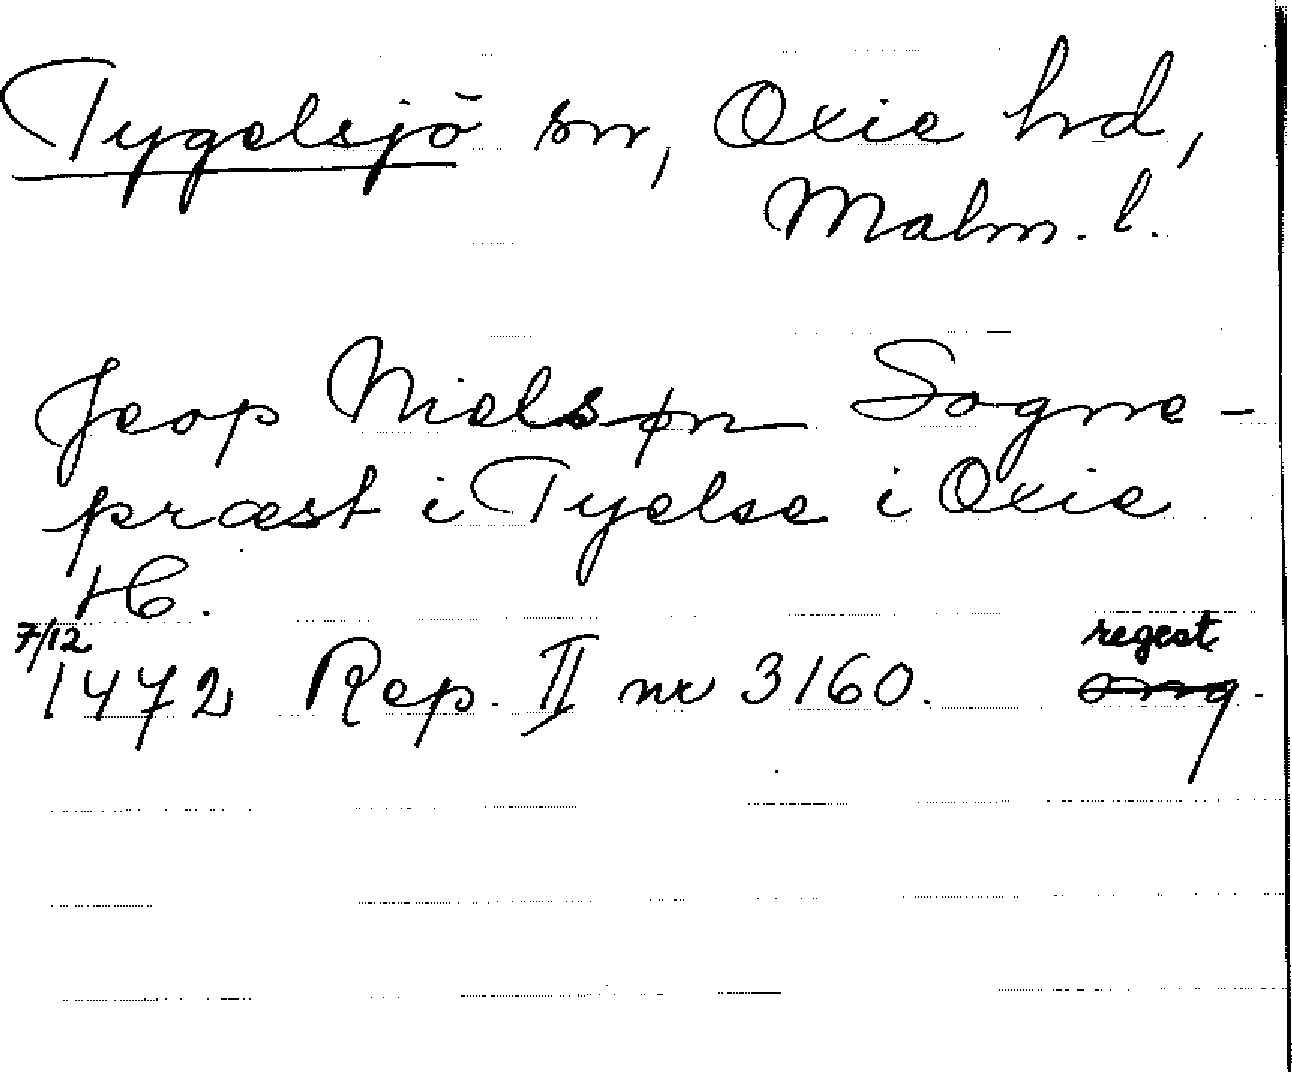 Tygelsjö sn, Oxie hd,
Malm. l.
Jeop Nielsøn Sogne-
præst i Tyelse i Oxie
H.
7/12
1472 Rep. II nr 3160. regest